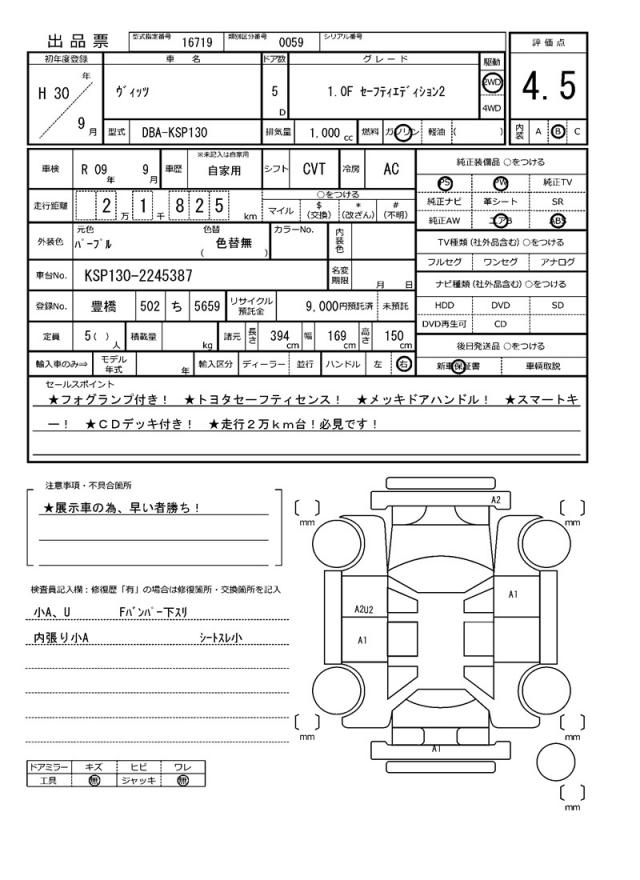 出品票 型式指定番号 16719 類別区分番号 0059 シリアル番号
初年度登録 車名 ドア数 グレード 駆動 評価点
H 30 年 9 月 ヴィッツ 5 D 1.0F セーフティエディション2 2WD 4WD 4.5
型式 DBA-KSP130 排気量 1,000 cc 燃料 ガソリン 軽油 ( ) 内装 A B C
車検 R 09 年 9 月 車歴 ※未記入は自家用 自家用 シフト CVT 冷房 AC
純正装備品 ○をつける
PS PW 純正TV
純正ナビ 革シート SR
純正AW エアB ABS
走行距離 2 万 1 千 8 2 5 km ○をつける
マイル $ (交換) * (改ざん) # (不明)
TV種類 (社外品含む) ○をつける
フルセグ ワンセグ アナログ
外装色 元色 パープル 色替 ( 色替無 ) カラーNo. 内装色
車台No. KSP130-2245387 名変期限 月 日
ナビ種類 (社外品含む) ○をつける
HDD DVD SD
DVD再生可 CD
登録No. 豊橋 502 ち 5659 リサイクル預託金 9,000円預託済 未預託
定員 5( ) 人 積載量 kg 諸元 長さ 394 cm 幅 169 cm 高さ 150 cm
後日発送品 ○をつける
新車保証書 車輌取説
輸入車のみ⇒ モデル年式 年 輸入区分 ディーラー 並行 ハンドル 左 右
セールスポイント
★フォグランプ付き！ ★トヨタセーフティセンス！ ★メッキドアハンドル！ ★スマートキ
ー！ ★ＣＤデッキ付き！ ★走行２万ｋｍ台！必見です！
注意事項・不具合箇所
★展示車の為、早い者勝ち！
検査員記入欄：修復歴「有」の場合は修復箇所・交換箇所を記入
小A、U Fバンパー下スリ
内張り小A シートスレ小
ドアミラー キズ ヒビ ワレ
工具 無 ジャッキ 無
A2
mm
mm
A1
A2U2
A1
mm
mm
A1
mm